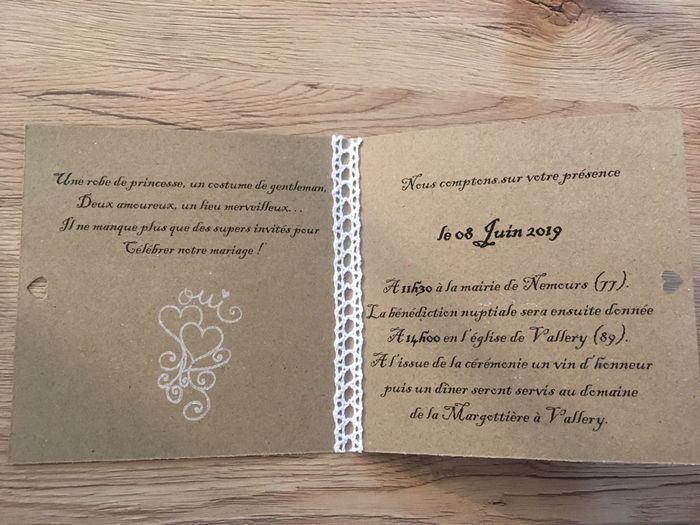 Une robe de princesse, un costume de gentleman,
Deux amoureux, un lieu merveilleux...
Il ne manque plus que des supers invités pour
Célébrer notre mariage !
oui
Nous comptons sur votre présence
le 08 Juin 2019
A 11h30 à la mairie de Nemours (77).
La bénédiction nuptiale sera ensuite donnée
A 14h00 en l'église de Vallery (89).
A l'issue de la cérémonie un vin d'honneur
puis un dîner seront servis au domaine
de la Margottière à Vallery.